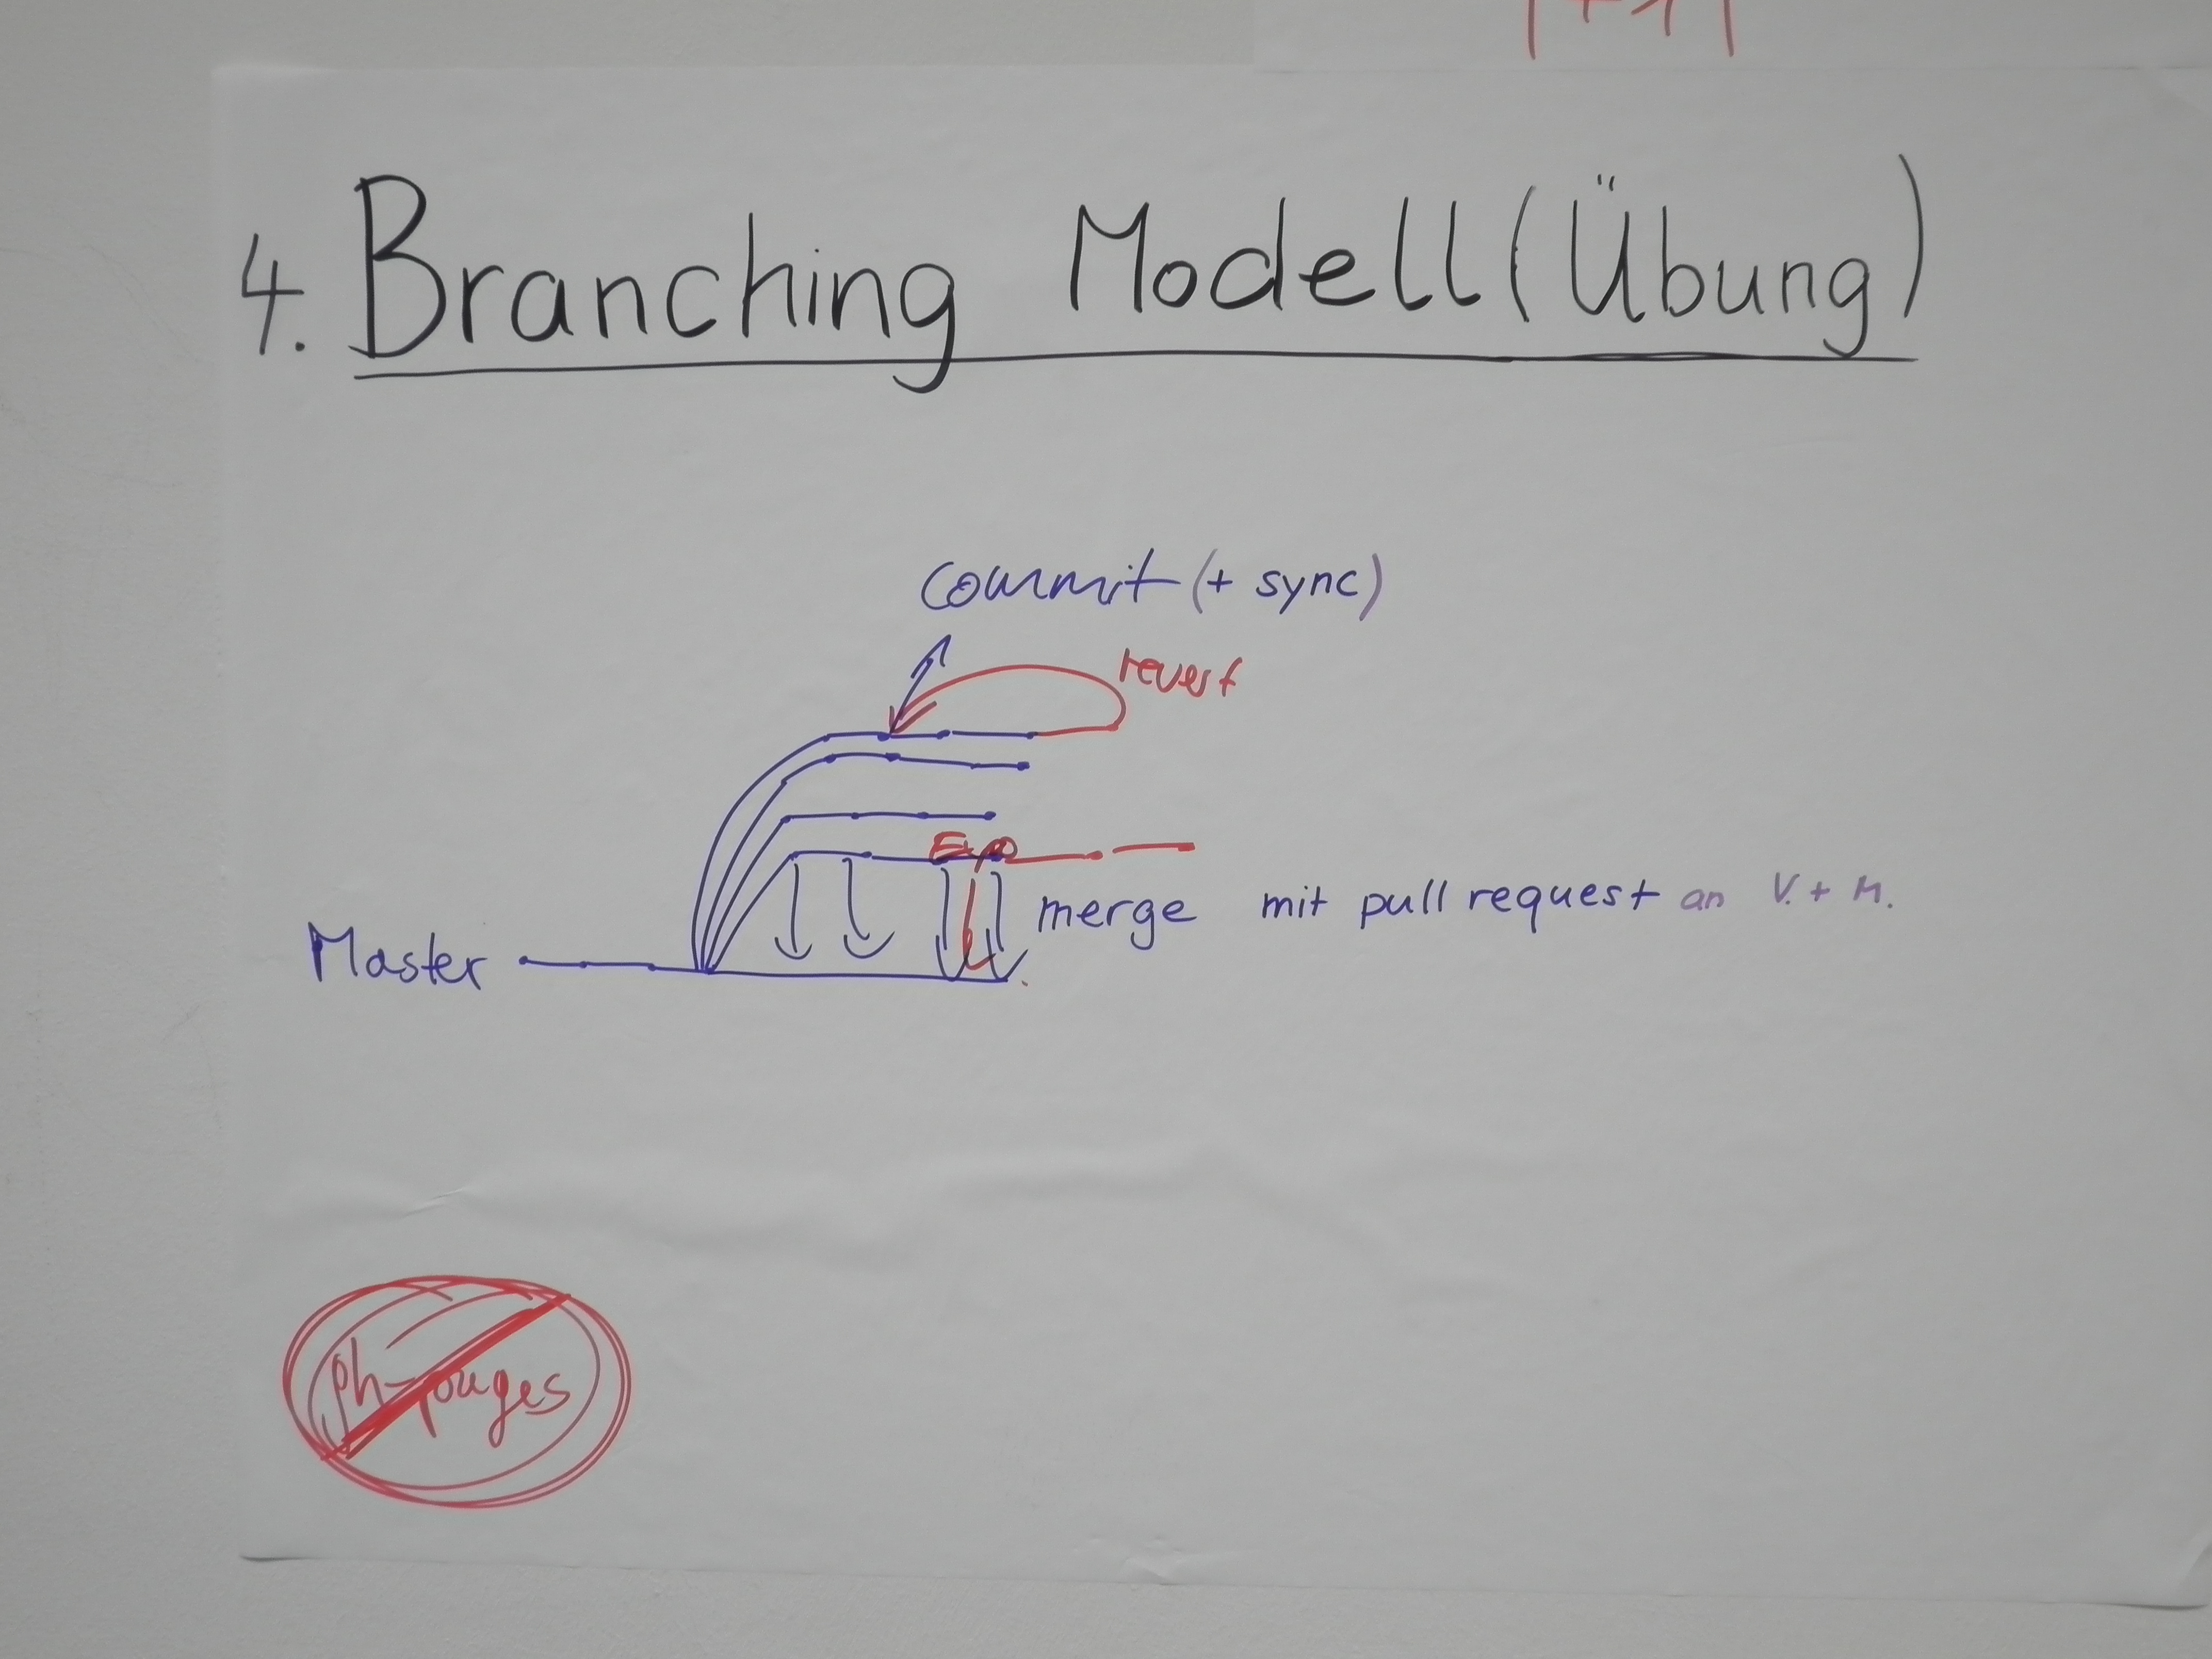 4. Branching Modell (Übung)
commit (+ sync)
revert
Exp
merge mit pull request an V. + M.
Master